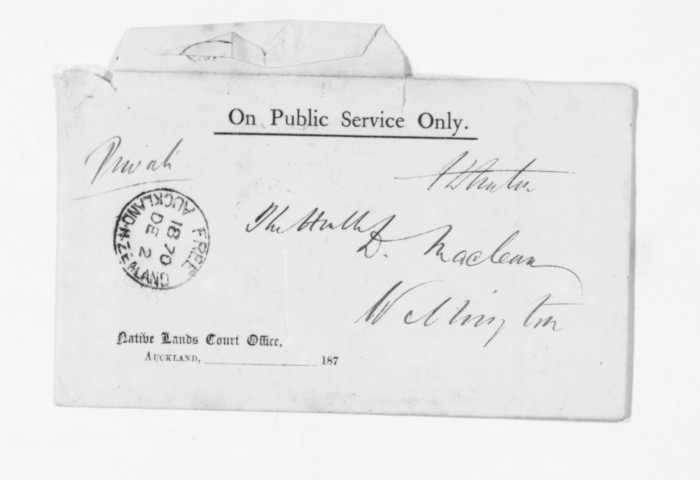 On Public Service Only.
Private
The Honble
D. Maclean
Wellington
FREE
AUCKLAND·N·ZEALAND
DE 2
1870
Native Lands Court Office,
AUCKLAND, 187